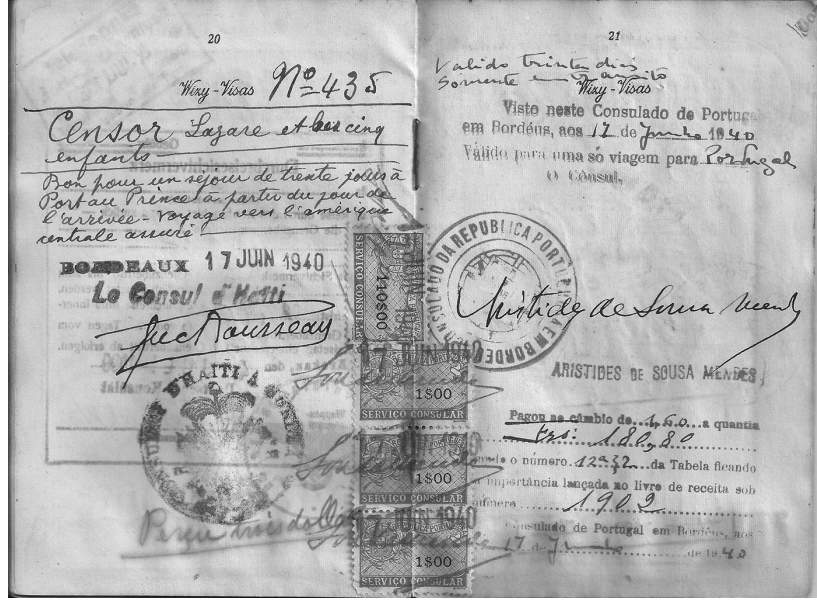 20
Wizy - Visas Nº 435
Censor Lazare et ses cinq
enfants
Bon pour un séjour de trente jours à
Port au Prince à partir du jour de
l'arrivée - voyage vers l'amérique
centrale assuré
BORDEAUX 17 JUIN 1940
Le Consul d'Haïti
CONSULAT D'HAITI A BORDEAUX
Perçu trois
SERVIÇO CONSULAR
110$00
1$00
SERVIÇO CONSULAR
17 JUIN 1940
1$00
SERVIÇO CONSULAR
JUIN 1940
1$00
SERVIÇO CONSULAR
21
Valido trinta dias
Somente em transito
Wizy - Visas
Visto neste Consulado de Portugal
em Bordéus, aos 17 de Junho 1940
Válido para uma só viagem para Portugal
O Consul,
CONSULADO DA REPUBLICA PORTUGUEZA EM BORDEUS
Aristides de Sousa Mendes
ARISTIDES DE SOUSA MENDES
Pagou ao câmbio de 1,60 a quantia
frs: 180,80
o número 1232 da Tabela ficando
importância lançada no livro de receita sob
número 1902
Consulado de Portugal em Bordéus, aos
17 de Junho de 1940